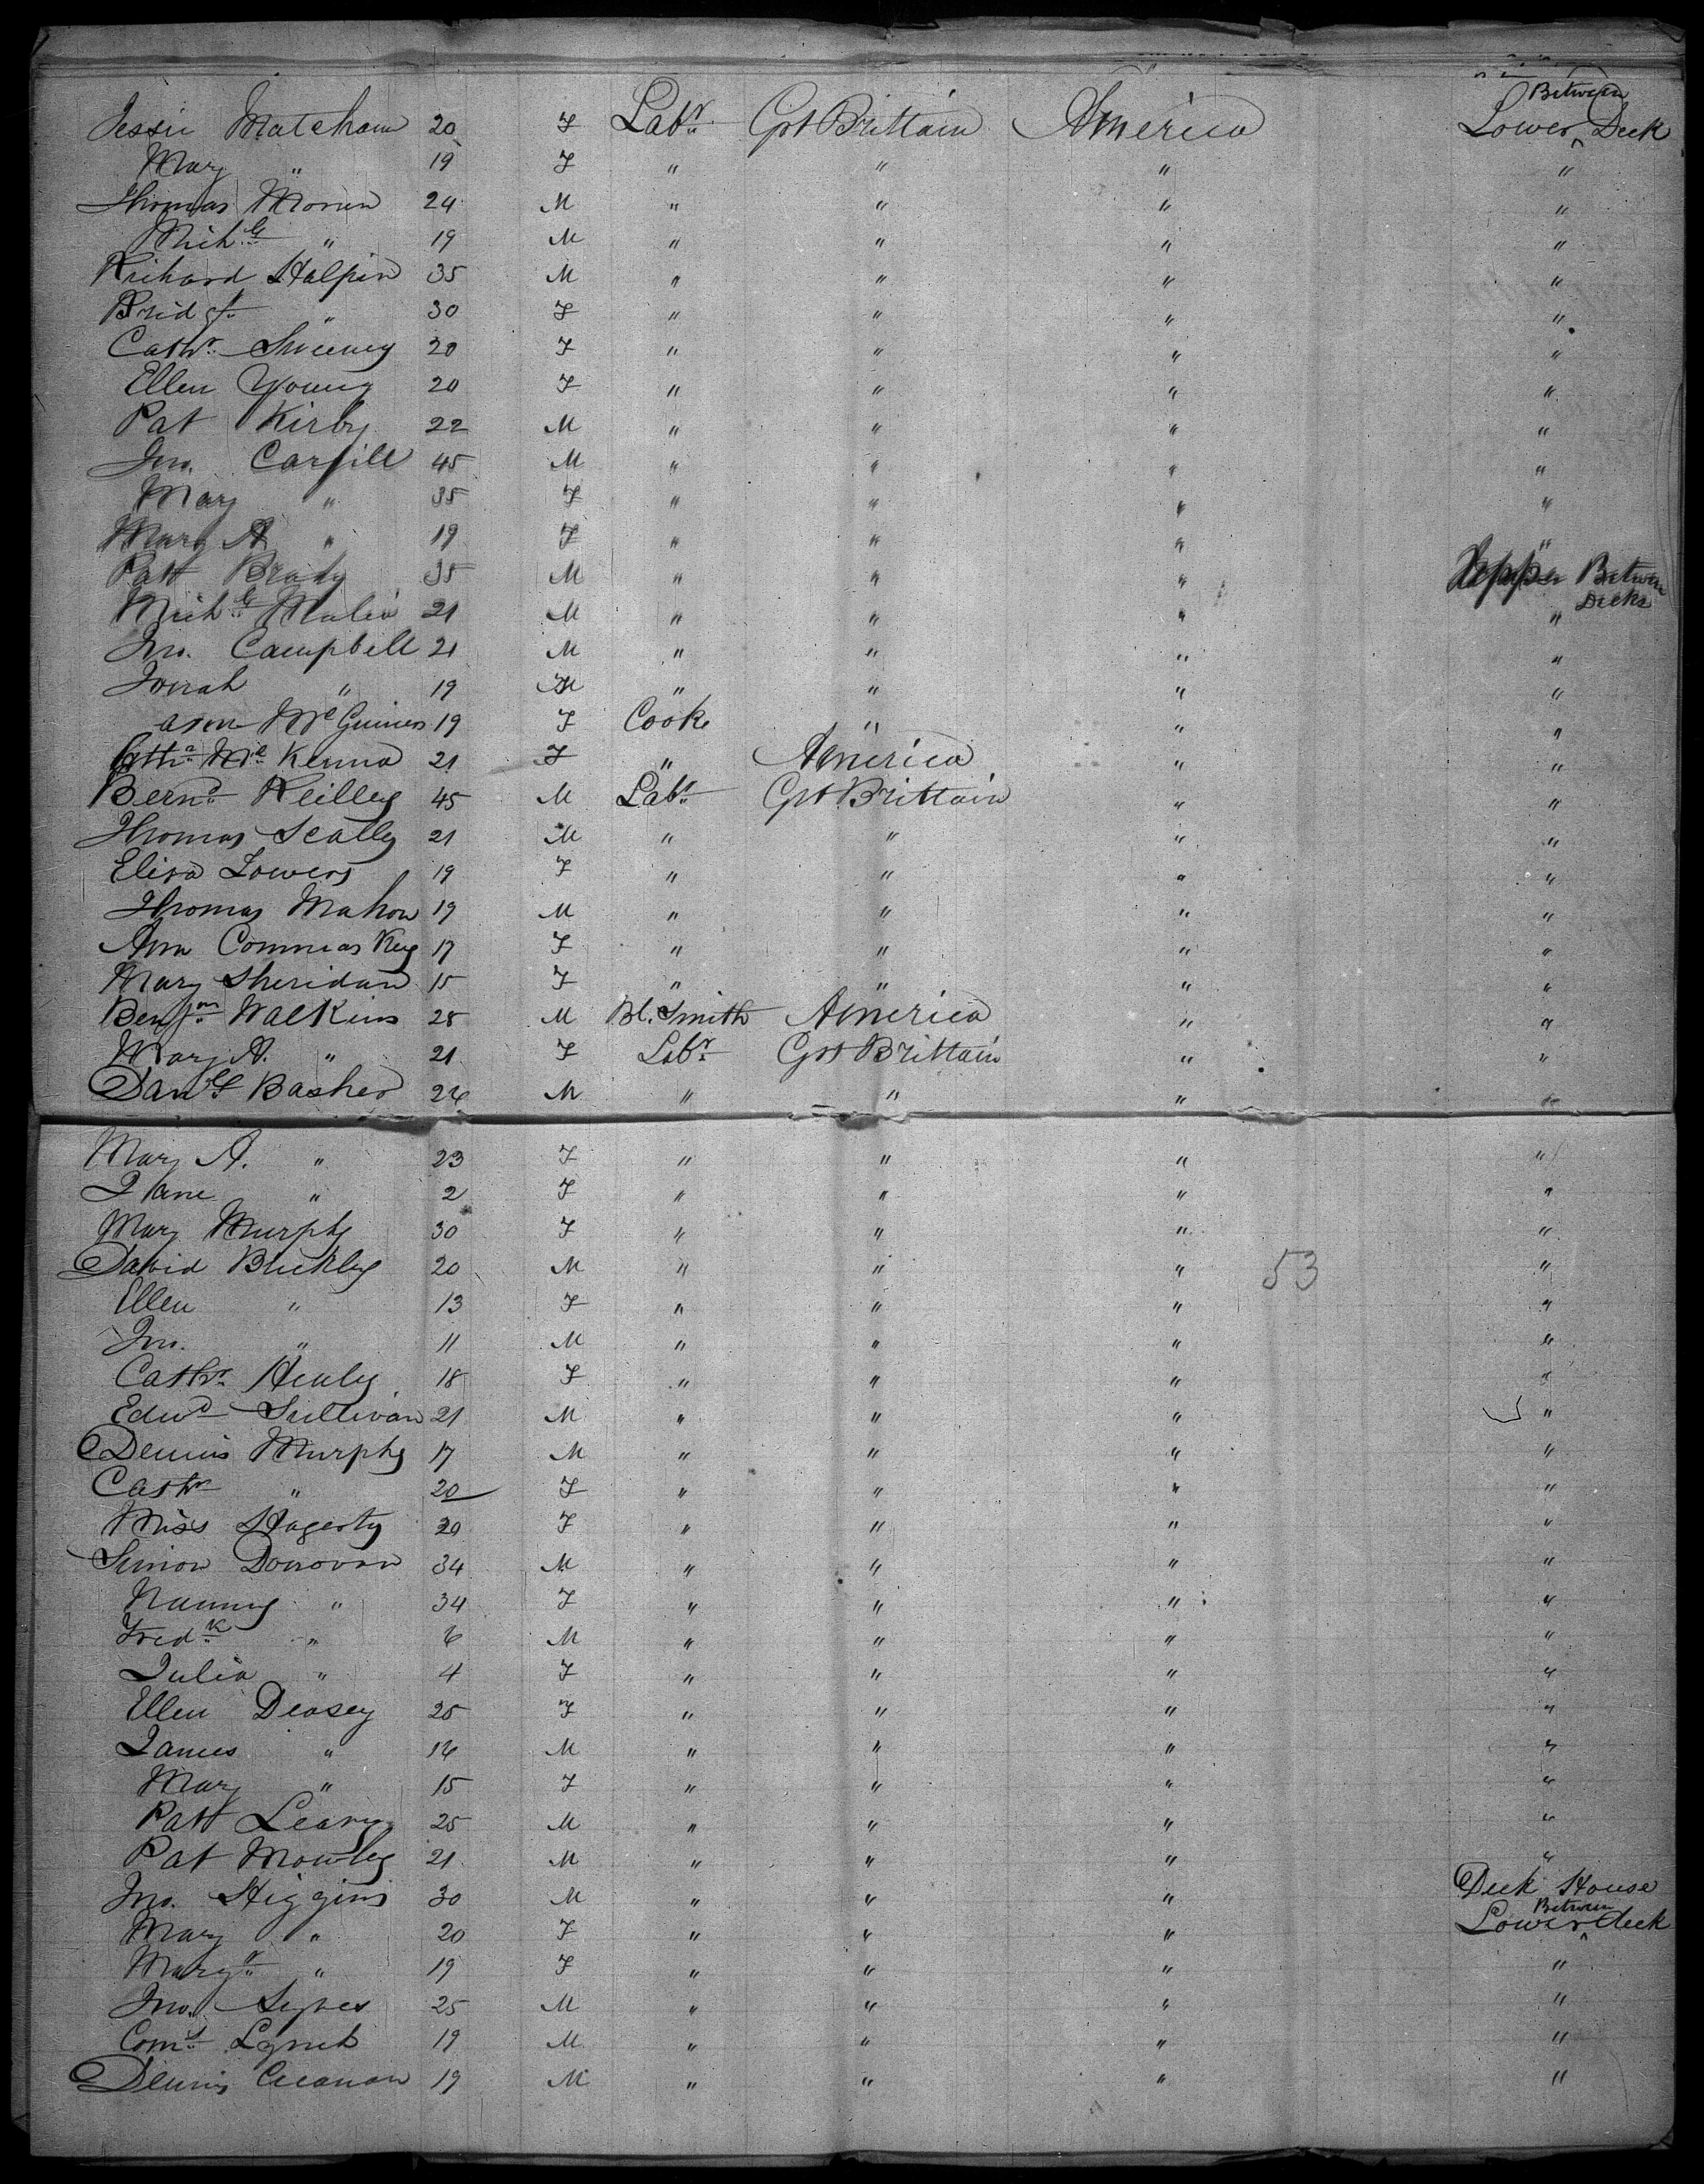 Jessie Matcham 20 F Labr. Grt Brittain America Lower Between Deck
Mary " 19 F " " " "
Thomas Moran 24 M " " " "
Michl. " 19 M " " " "
Richard Halpin 35 M " " " "
Bridgt. " 30 F " " " "
Cathr. Sweeney 20 F " " " "
Ellen Young 20 F " " " "
Pat Kirby 22 M " " " "
Jno. Cargill 45 M " " " "
Mary " 35 F " " " "
Mary A " 19 F " " " "
Patt Brady 35 M " " " Upper Between Decks
Michl. Malia 21 M " " " "
Jno. Campbell 21 M " " " "
19 " " " "
Ann McGuines 19 F Cooke " " "
McKenna 21 F " America " "
Bernd. Reilley 45 M Labr. Grt Brittain " "
Thomas Scally 21 M " " " "
Eliza Towers 19 F " " " "
Thomas Mahon 19 M " " " "
Ann Commas Key 17 F " " " "
Mary Sheridan 15 F " " " "
Benjmn. Walkins 28 M Bl. Smith America " "
Mary A. " 21 F Labr. Grt Brittain " "
Danl. Basher 26 M " " " "
Mary A. " 23 F " " " "
Jane " 2 F " " " "
Mary Murphy 30 F " " " "
David Buckley 20 M " " " "
53
Ellen " 13 F " " " "
Jno. " 11 M " " " "
Cathr. Healey 18 F " " " "
Edwd. Sullivan 21 M " " " "
Dennis Murphy 17 M " " " "
Cathr " 20 F " " " "
Miss Hagerty 20 F " " " "
Simon Donovan 34 M " " " "
Nanny " 34 F " " " "
Fredk. " 6 M " " " "
Julia " 4 F " " " "
Ellen Deasey 25 F " " " "
James " 16 M " " " "
Mary " 15 F " " " "
Patt Leary 25 M " " " "
Pat 21 M " " " "
Jno. Higgins 30 M " " " Deck House
Mary " 20 F " " " Lower Between deck
Margt. " 19 F " " " "
Jno. 25 M " " " "
Lynch 19 M " " " "
Dennis 19 M " " " "